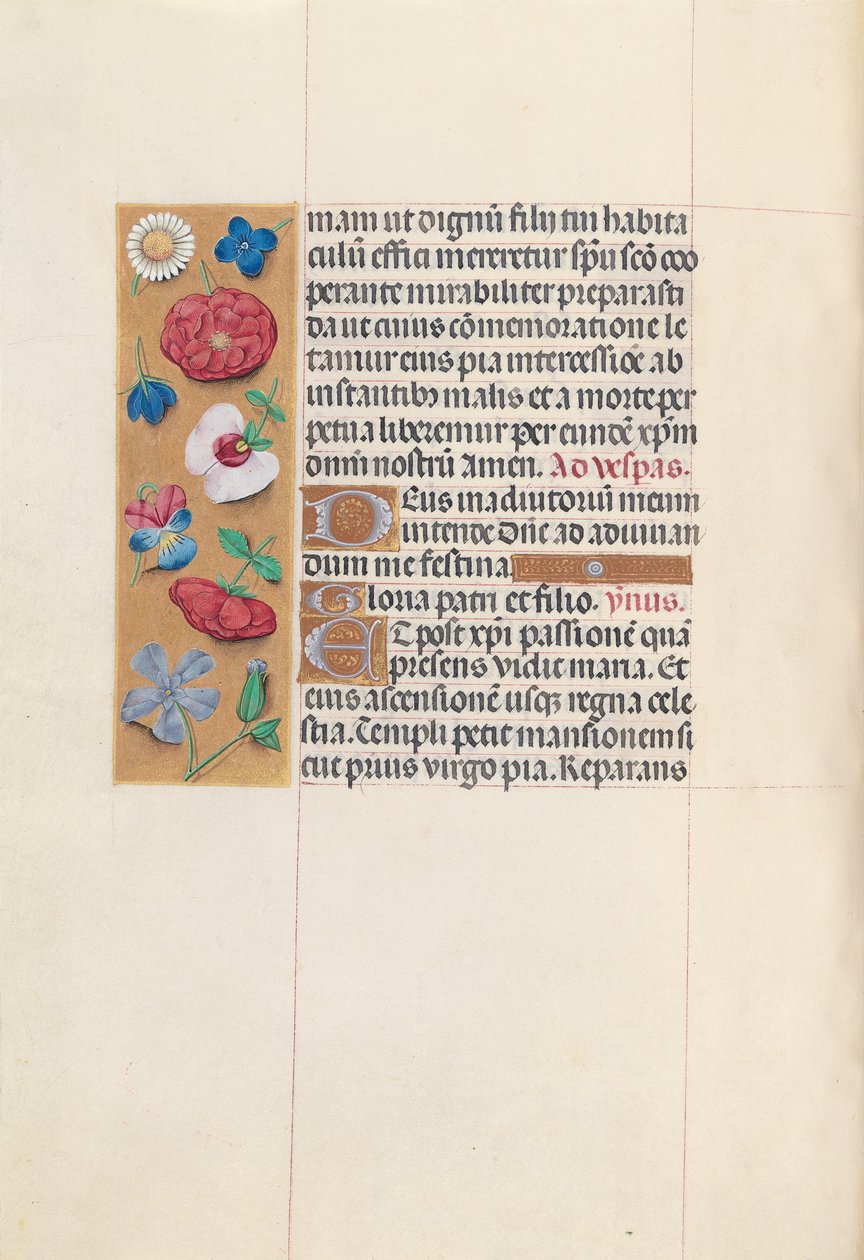 mam ut dignū filij tui habita
culū effici mereretur sp̄u scō coo
perante mirabiliter preparasti
da ut cuius cōmemoratione le
tamur eius pia intercessiōe ab
instantibꝫ malis et a morte per
petua liberemur per eundē xp̄m
dn̄m nostrū Amen. Ad vespas.
Deus in adiutoriū meum
intende Dn̄e ad adiuuan
dum me festina
Gloria patri et filio. ẏmnus.
Et post xp̄i passionē quā
presens vidit maria. Et
eius ascensionē usqꝫ regna cele
stia. Templi petit mansionem si
cut prius virgo pia. Reparans